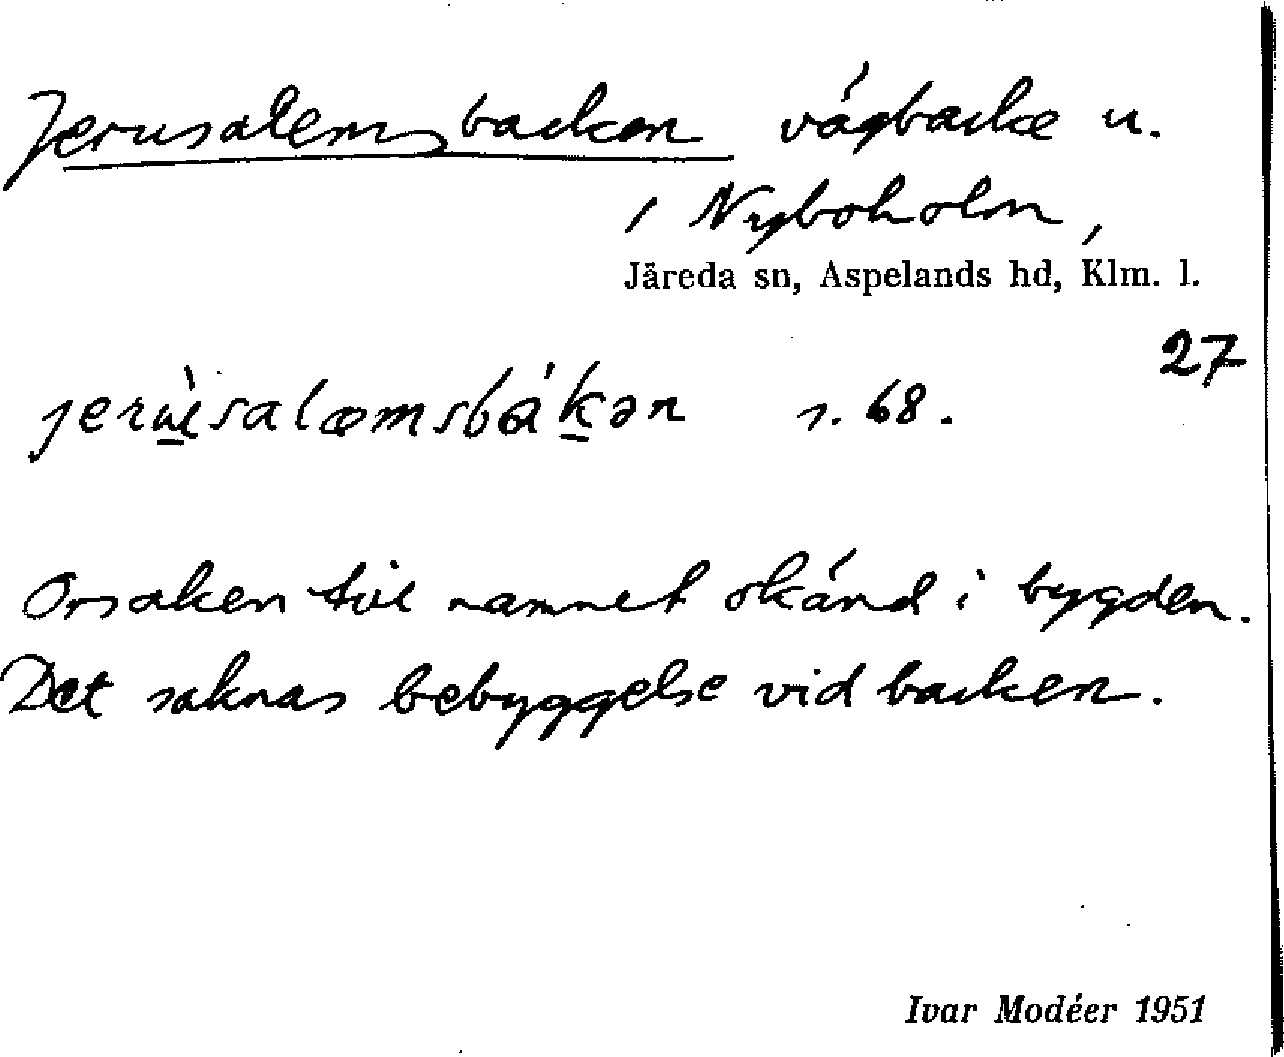 Jerusalemsbacken vägbacke u.
/ Nyboholm,
Järeda sn, Aspelands hd, Klm. l.
27
s. 68.
Orsaken till namnet okänd i bygden.
Det saknas bebyggelse vid backen.
Ivar Modéer 1951